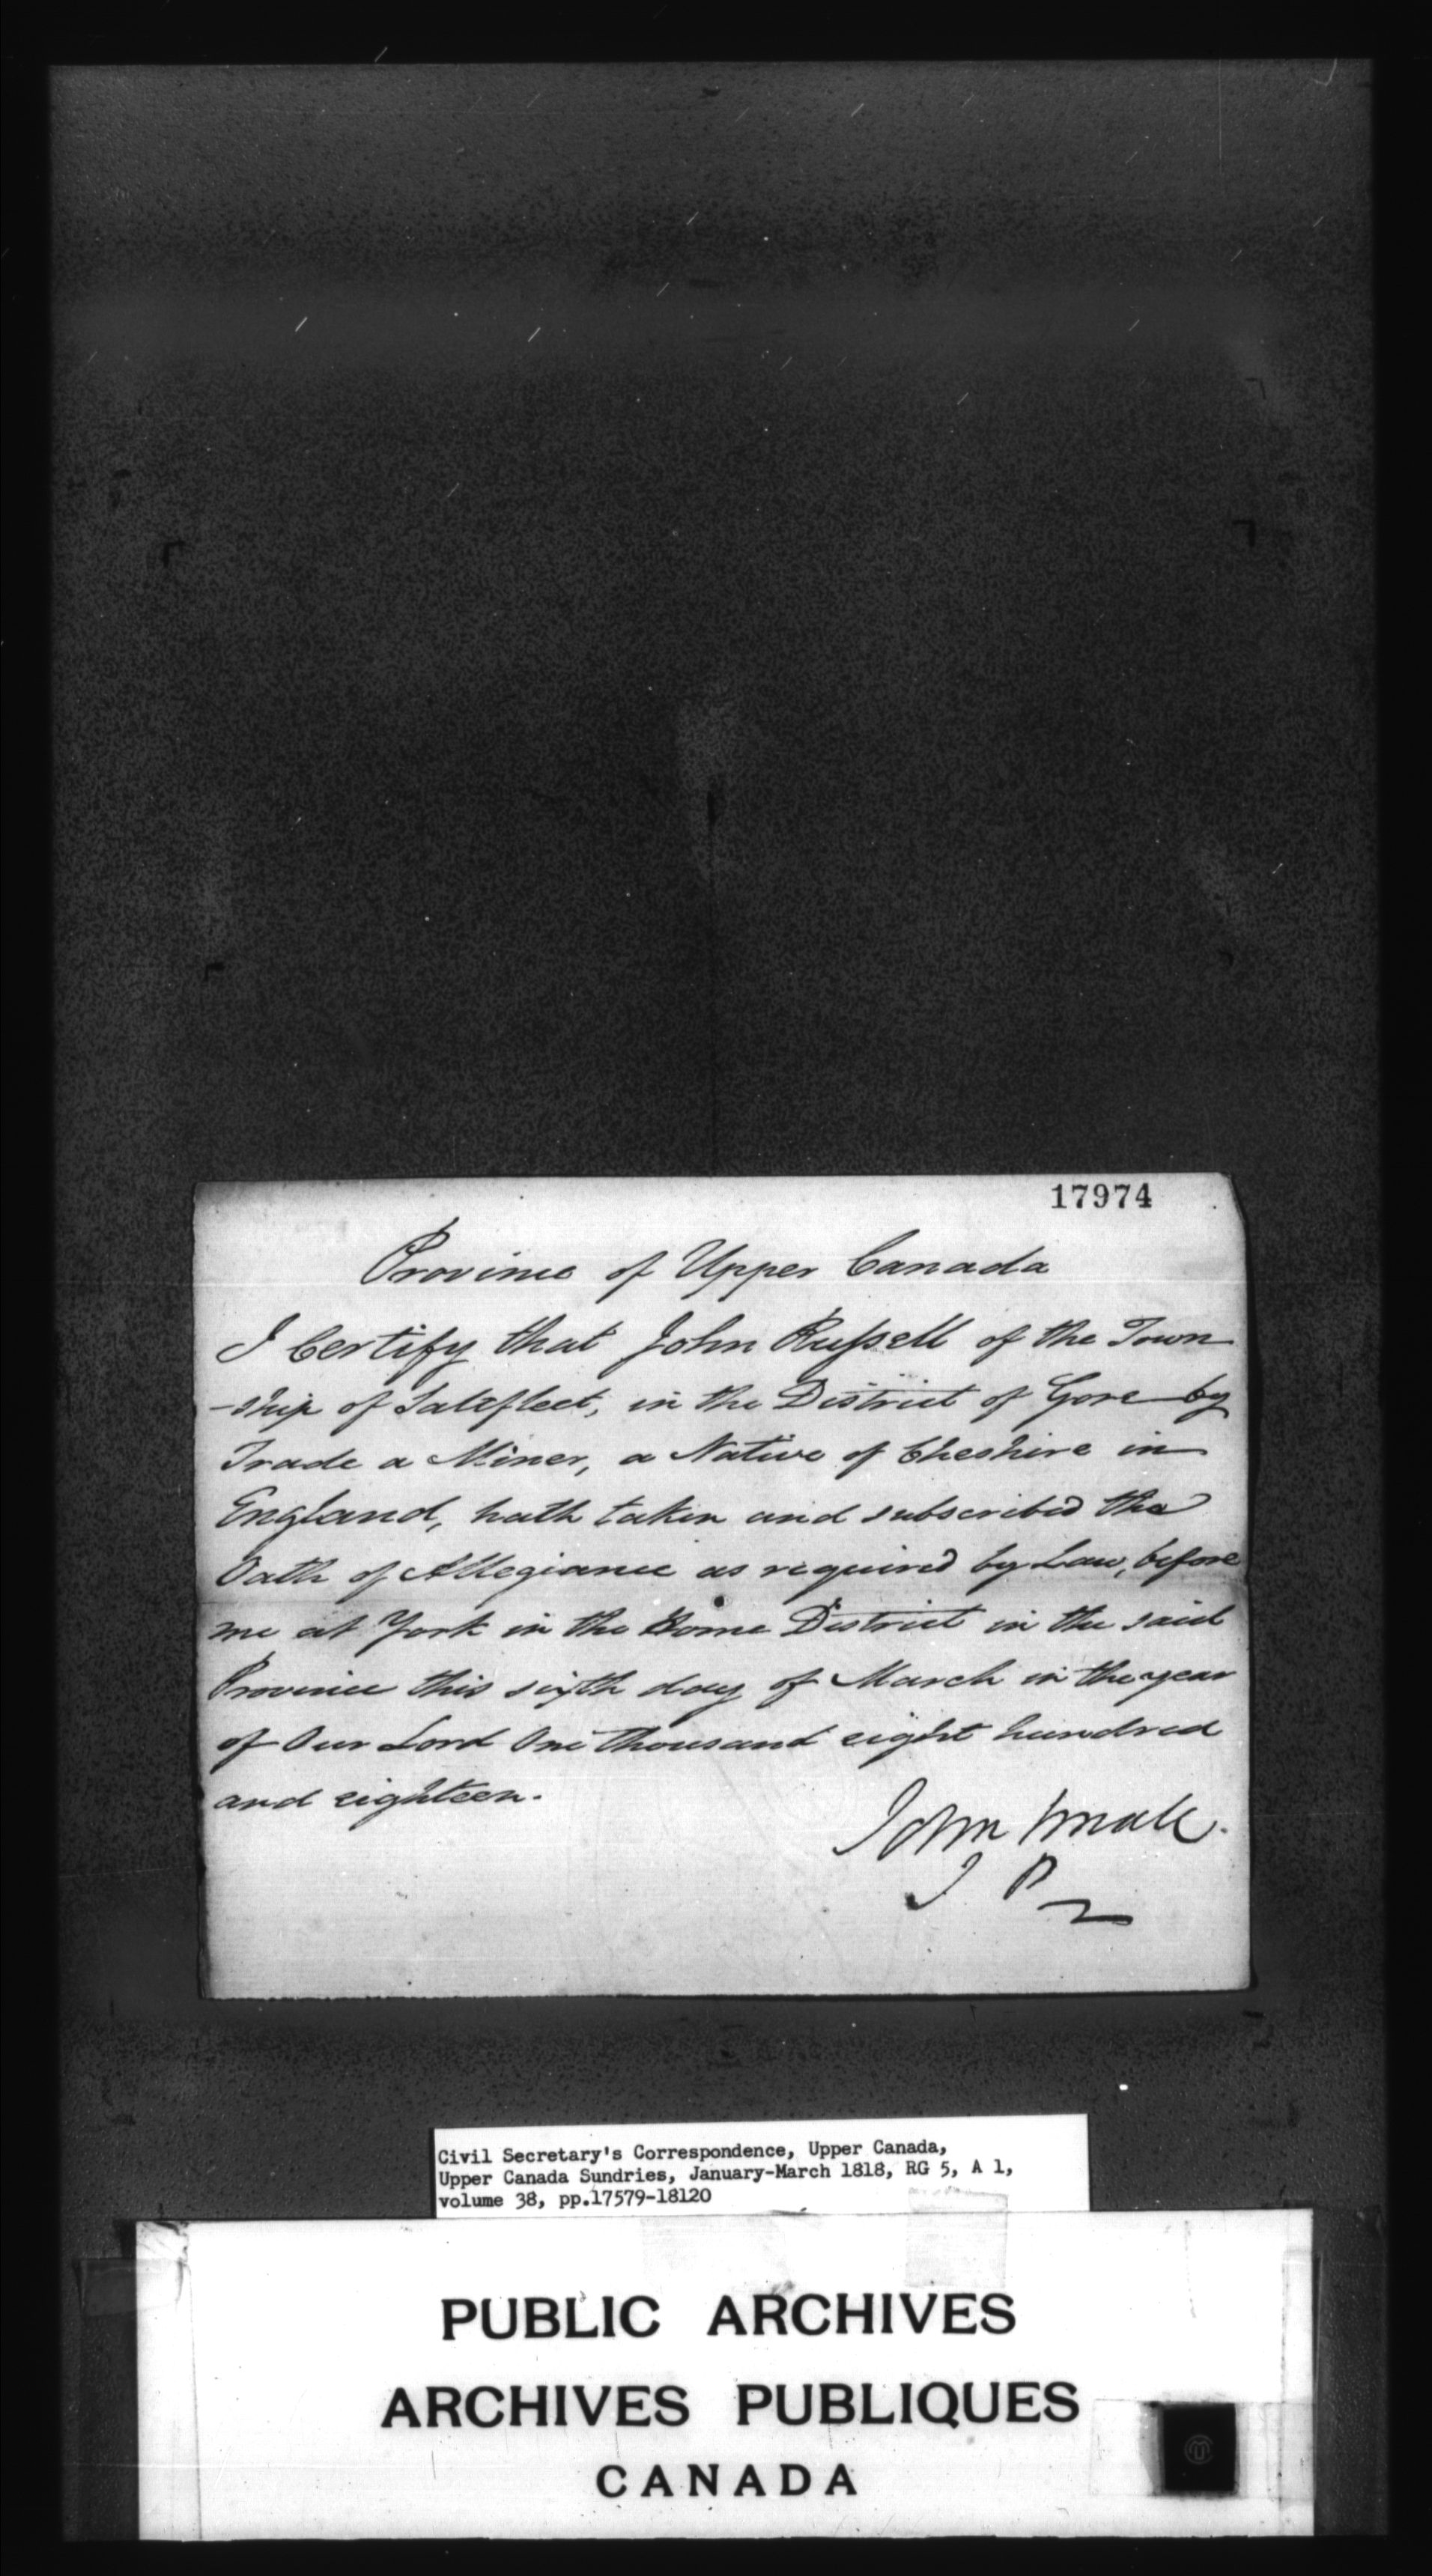 17974
Province of Upper Canada
I Certify that John Russell of the Town
-ship of Saltfleet, in the District of Gore by
Trade a Miner, a Native of Cheshire in
England, hath taken and subscribed the
Oath of Allegiance as required by Law, before
me at York in the Home District in the said
Province this sixth day of March in the year
of Our Lord One thousand eight hundred
and eighteen.
John Small.
J P
Civil Secretary's Correspondence, Upper Canada,
Upper Canada Sundries, January-March 1818, RG 5, A 1,
volume 38, pp.17579-18120
PUBLIC ARCHIVES
ARCHIVES PUBLIQUES
CANADA